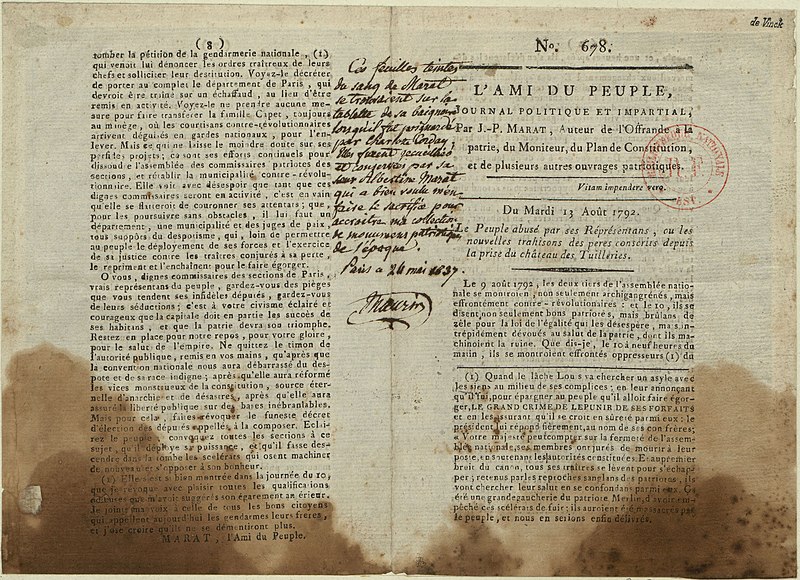 de Vinck
( 8 )
tomber la pétition de la gendarmerie nationale, (1)
qui venoit lui dénoncer les ordres traîtreux de leurs
chefs et solliciter leur destitution. Voyez-le décréter
de porter au complet le département de Paris, qui
devroit être traîné sur un échaffaud, au lieu d'être
remis en activité. Voyez-le ne prendre aucune me-
sure pour faire transférer la famille Capet, toujours
au manège, où les courtisans contre-révolutionnaires
arrivent déguisés en gardes nationaux, pour l'en-
lever. Mais ce qui ne laisse le moindre doute sur ses
perfides projets; ce sont ses efforts continuels pour
dissoudre l'assemblée des commissaires patriotes des
sections, et rétablir la municipalité contre-révolu-
tionnaire. Elle voit avec désespoir que tant que ces
dignes commissaires seront en activité, c'est en vain
qu'elle se flatteroit de couronner ses attentats; que
pour les poursuivre sans obstacles, il lui faut un
département, une municipalité et des juges de paix
tous suppôts du despotisme, qui, loin de permettre
au peuple le déployement de ses forces et l'exercice
de sa justice contre les traîtres conjurés à sa perte,
le repriment et l'enchaînent pour le faire égorger.
O vous, dignes commissaires des sections de Paris,
vrais représentans du peuple, gardez-vous des pièges
que vous tendent ses infidèles députés, gardez-vous
de leurs séductions; c'est à votre civisme éclairé et
courageux que la capitale doit en partie les succès de
ses habitans, et que la patrie devra son triomphe.
Restez en place pour notre repos, pour votre gloire,
pour le salut de l'empire. Ne quittez le timon de
l'autorité publique, remis en vos mains, qu'après que
la convention nationale nous aura débarrassé du des-
pote et de sa race indigne; après qu'elle aura réformé
les vices monstrueux de la constitution, source éter-
nelle d'anarchie et de désastres, après qu'elle aura
assuré la liberté publique sur des bases inébranlables.
Mais pour cela, faites révoquer le funeste décret
d'élection des députés appellés à la composer. Eclai-
rez le peuple, convoquez toutes les sections à ce
sujet, qu'il déploye sa puissance, et qu'il fasse des-
cendre dans la tombe les scélérats qui osent machiner
de nouveau et s'opposer à son bonheur.
(1) Elle s'est si bien montrée dans la journée du 10,
que je révoque avec plaisir toutes les qualifications
odieuses que m'avoit suggérés son égarement antérieur.
Je joins ma voix à celle de tous les bons citoyens
qui appellent aujourd'hui les gendarmes leurs frères,
et j'ose croire qu'ils ne se démentiront plus.
MARAT, l'Ami du Peuple.
Ces feuilles teintes
du sang de Marat
se trouvaient sur la
tablette de sa baignoire
lorsqu'il fut poignardé
par Charlotte Corday;
elles furent recueillies
et conservées par sa
sœur Albertine Marat
qui a bien voulu m'en
faire le sacrifice pour
accroître ma collection
de monumens patriotiques
de l'époque.
Paris a 24 mai 1837.
Maurin
No. 678.
L'AMI DU PEUPLE,
JOURNAL POLITIQUE ET IMPARTIAL,
Par J.-P. MARAT, Auteur de l'Offrande à la
patrie, du Moniteur, du Plan de Constitution,
et de plusieurs autres ouvrages patriotiques.
Vitam impendere vero.
BIBLIOTHÈQUE NATIONALE
R.F
EST.
Du Mardi 13 Août 1792.
Le Peuple abusé par ses Représentans, ou les
nouvelles trahisons des peres conscrits depuis
la prise du château des Tuilleries.
Le 9 août 1792, les deux tiers de l'assemblée natio-
nale se montroient, non seulement archigangrenés, mais
effrontément contre-révolutionnaires: et le 10, ils se
disent, non seulement bons patriotes, mais brûlans de
zèle pour la loi de l'égalité qui les désespère, mais in-
trépidement dévoués au salut de la patrie, dont ils ma-
chinoient la ruine. Que dis-je, le 10 à neuf heures du
matin, ils se montroient effrontés oppresseurs (1) du
(1) Quand le lâche Louis va chercher un asyle avec
les siens au milieu de ses complices; en leur annonçant
qu'il vit, pour épargner au peuple qu'il alloit faire égor-
ger, LE GRAND CRIME DE LE PUNIR DE SES FORFAITS
et en les assurant qu'il se croit en sûreté parmi eux: le
président lui répond fièrement, au nom de ses confrères;
« Votre majesté peut compter sur la fermeté de l'assem-
blée nationale, ses membres ont jurés de mourir à leur
poste, en soutenant les autorités constitués. Et au premier
bruit du canon, tous ses traîtres se lèvent pour s'échap-
per; retenus par les reproches sanglans des patriotes, ils
vont chercher leur salut en se confondant parmi eux. Ç'a
été une grande gaucherie du patriote Merlin, d'avoir em-
pêché ces scélérats de fuir; ils auroient été massacrés par
le peuple, et nous en serions enfin délivrés.